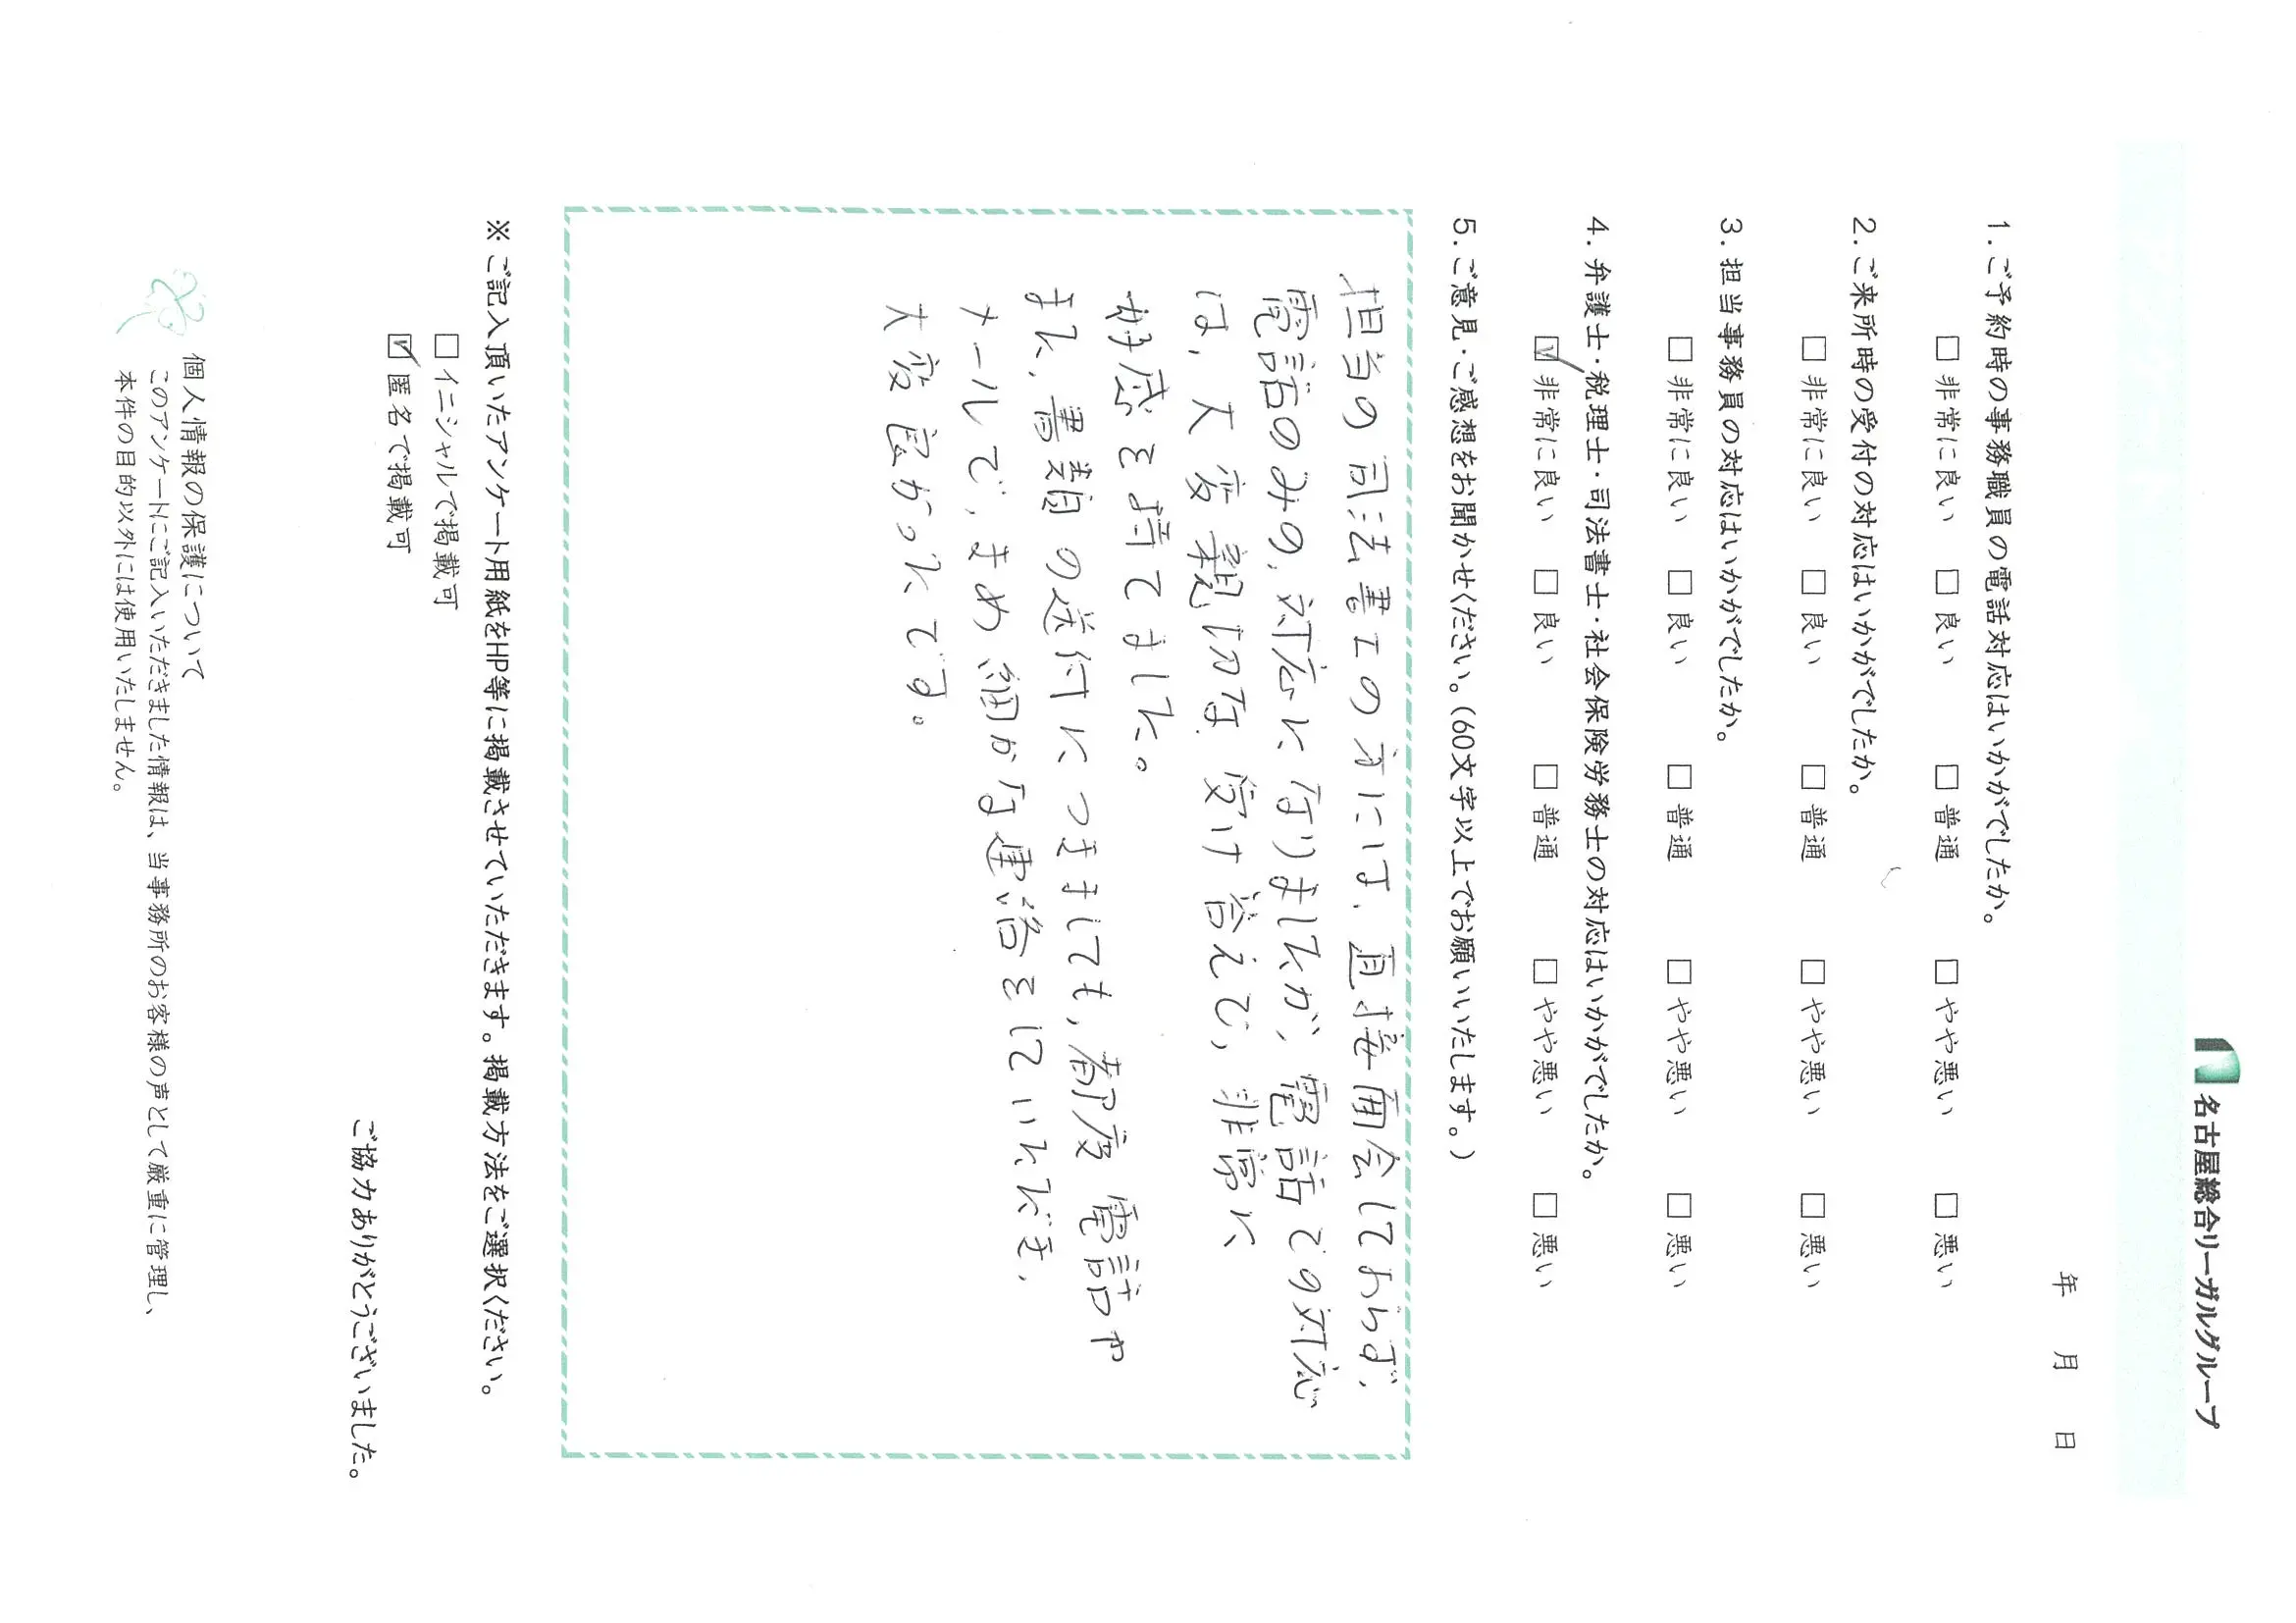 名古屋総合リーガルグループ
年　月　日
1. ご予約時の事務職員の電話対応はいかがでしたか。
□ 非常に良い □ 良い □ 普通 □ やや悪い □ 悪い
2. ご来所時の受付の対応はいかがでしたか。
□ 非常に良い □ 良い □ 普通 □ やや悪い □ 悪い
3. 担当事務員の対応はいかがでしたか。
□ 非常に良い □ 良い □ 普通 □ やや悪い □ 悪い
4. 弁護士・税理士・司法書士・社会保険労務士の対応はいかがでしたか。
☑ 非常に良い □ 良い □ 普通 □ やや悪い □ 悪い
5. ご意見・ご感想をお聞かせください。(60文字以上でお願いいたします。)
担当の司法書士の方には、直接面会しておらず、
電話のみの、対応になりましたが、電話での対応
は、大変親切な受け答えで、非常に
好感を持てました。
また、書類の送付につきましても、都度電話や
メールで、きめ細かな連絡をしていただき、
大変良かったです。
※ ご記入頂いたアンケート用紙をHP等に掲載させていただきます。掲載方法をご選択ください。
□ イニシャルで掲載可
☑ 匿名で掲載可
ご協力ありがとうございました。
個人情報の保護について
このアンケートにご記入いただきました情報は、当事務所のお客様の声として厳重に管理し、
本件の目的以外には使用いたしません。